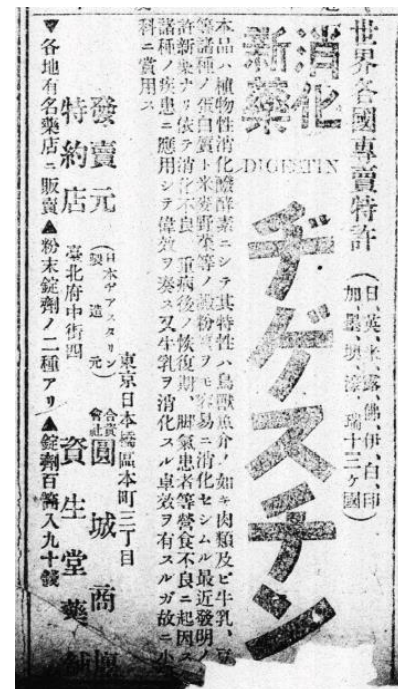 世界各國專賣特許
(日、英、米、露、佛、伊、白、印
加、墨、墺、濠、瑞十三ヶ國)
消化
新藥
DIGESTIN
ヂゲスチン
本品ハ植物性消化醱酵素ニシテ其特性ハ鳥獸魚介ノ如キ肉類及ビ牛乳、豆
等諸種ノ蛋白質ト米麥野菜等ノ澱粉質ヲモ容易ニ消化セシムル最近發明ノ
許新藥ナリ依テ消化不良、重病後ノ恢復期、脚氣患者等營食不良ニ起因ス
諸種ノ疾患ニ應用シテ偉效ヲ奏ス又牛乳ヲ消化スル卓效ヲ有スルガ故ニ小
科ニ賞用ス
發賣元
(日本ヂアスタリン
製造元)
東京日本橋區本町三丁目
合資
會社
圓城商
特約店
臺北府中街四
資生堂藥舖
▼各地有名藥店ニ販賣▲粉末錠劑ノ二種アリ▲錠劑百箇入九十錢